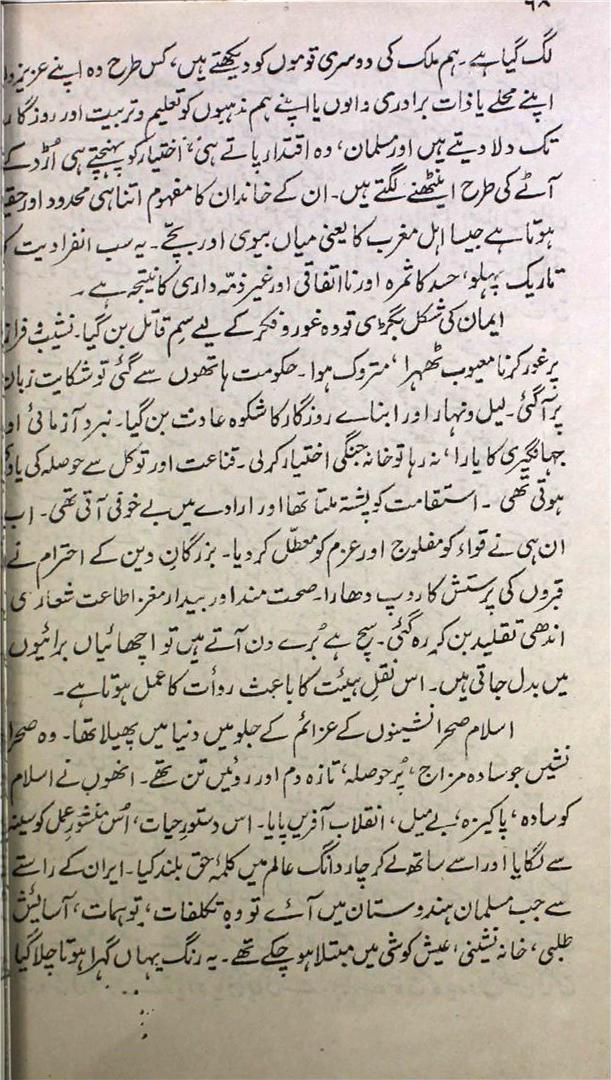 ۶۸
لگ گیا ہے۔ ہم ملک کی دوسری قوموں کو دیکھتے ہیں، کس طرح وہ اپنے عزیزوں
اپنے محلے یا ذات برادری والوں یا اپنے ہم مذہبوں کو تعلیم و تربیت اور روزگار
تک دلا دیتے ہیں اور مسلمان، وہ اقتدار پاتے ہی، اختیار کو پہنچتے ہی اُڑد کے
آٹے کی طرح اینٹھنے لگتے ہیں۔ ان کے خاندان کا مفہوم اتنا ہی محدود اور
ہوتا ہے جیسا اہل مغرب کا یعنی میاں بیوی اور بچّے۔ یہ سب انفرادیت کا
تاریک پہلو، حسد کا ثمرہ اور نااتفاقی اور غیر ذمّہ داری کا نتیجہ ہے۔
ایمان کی شکل بگڑی تو وہ غور و فکر کے لیے سمِ قاتل بن گیا۔ نشیب و فراز
پر غور کرنا معیوب ٹھہرا، متروک ہوا۔ حکومت ہاتھوں سے گئی تو شکایت زبان
پر آگئی۔ لیل و نہار اور ابنائے روزگار کا شکوہ عادت بن گیا۔ نبرد آزمائی او
جہانگیری کا یارا، نہ رہا تو خانہ جنگی اختیار کرلی۔ قناعت اور توکل سے حوصلہ کی
ہوتی تھی۔ استقامت کو پشتہ ملتا تھا اور ارادے میں بے خوفی آتی تھی۔ اب
ان ہی نے قواء کو مفلوج اور عزم کو معطّل کر دیا۔ بزرگانِ دین کے احترام نے
قبروں کی پرستش کا روپ دھارا۔ صحت مند اور بیدار مغز اطاعت شعاری
اندھی تقلید بن کر رہ گئی۔ سچ ہے بُرے دن آتے ہیں تو اچھائیاں برائیوں
میں بدل جاتی ہیں۔ اس نقلِ ہیئت کا باعث روأت کا عمل ہوتا ہے۔
اسلام صحرا نشینوں کے عزائم کے جلو میں دنیا میں پھیلا تھا۔ وہ صحرا
نشیں جو سادہ مزاج، پُر حوصلہ، تازہ دم اور روئیں تن تھے۔ انھوں نے اسلام
کو سادہ، پاکیزہ، بے میل، انقلاب آفریں پایا۔ اس دستورِ حیات، اُس منشورِ عمل کو سینہ
سے لگایا اور اسے ساتھ لے کر چار دانگ عالم میں کلمۂ حق بلند کیا۔ ایران کے راستے
سے جب مسلمان ہندوستان میں آئے تو وہ تکلفات، توہمات، آسایش
طلبی، خانہ نشینی، عیش کوشی میں مبتلا ہو چکے تھے۔ یہ رنگ یہاں گہرا ہوتا چلا گیا